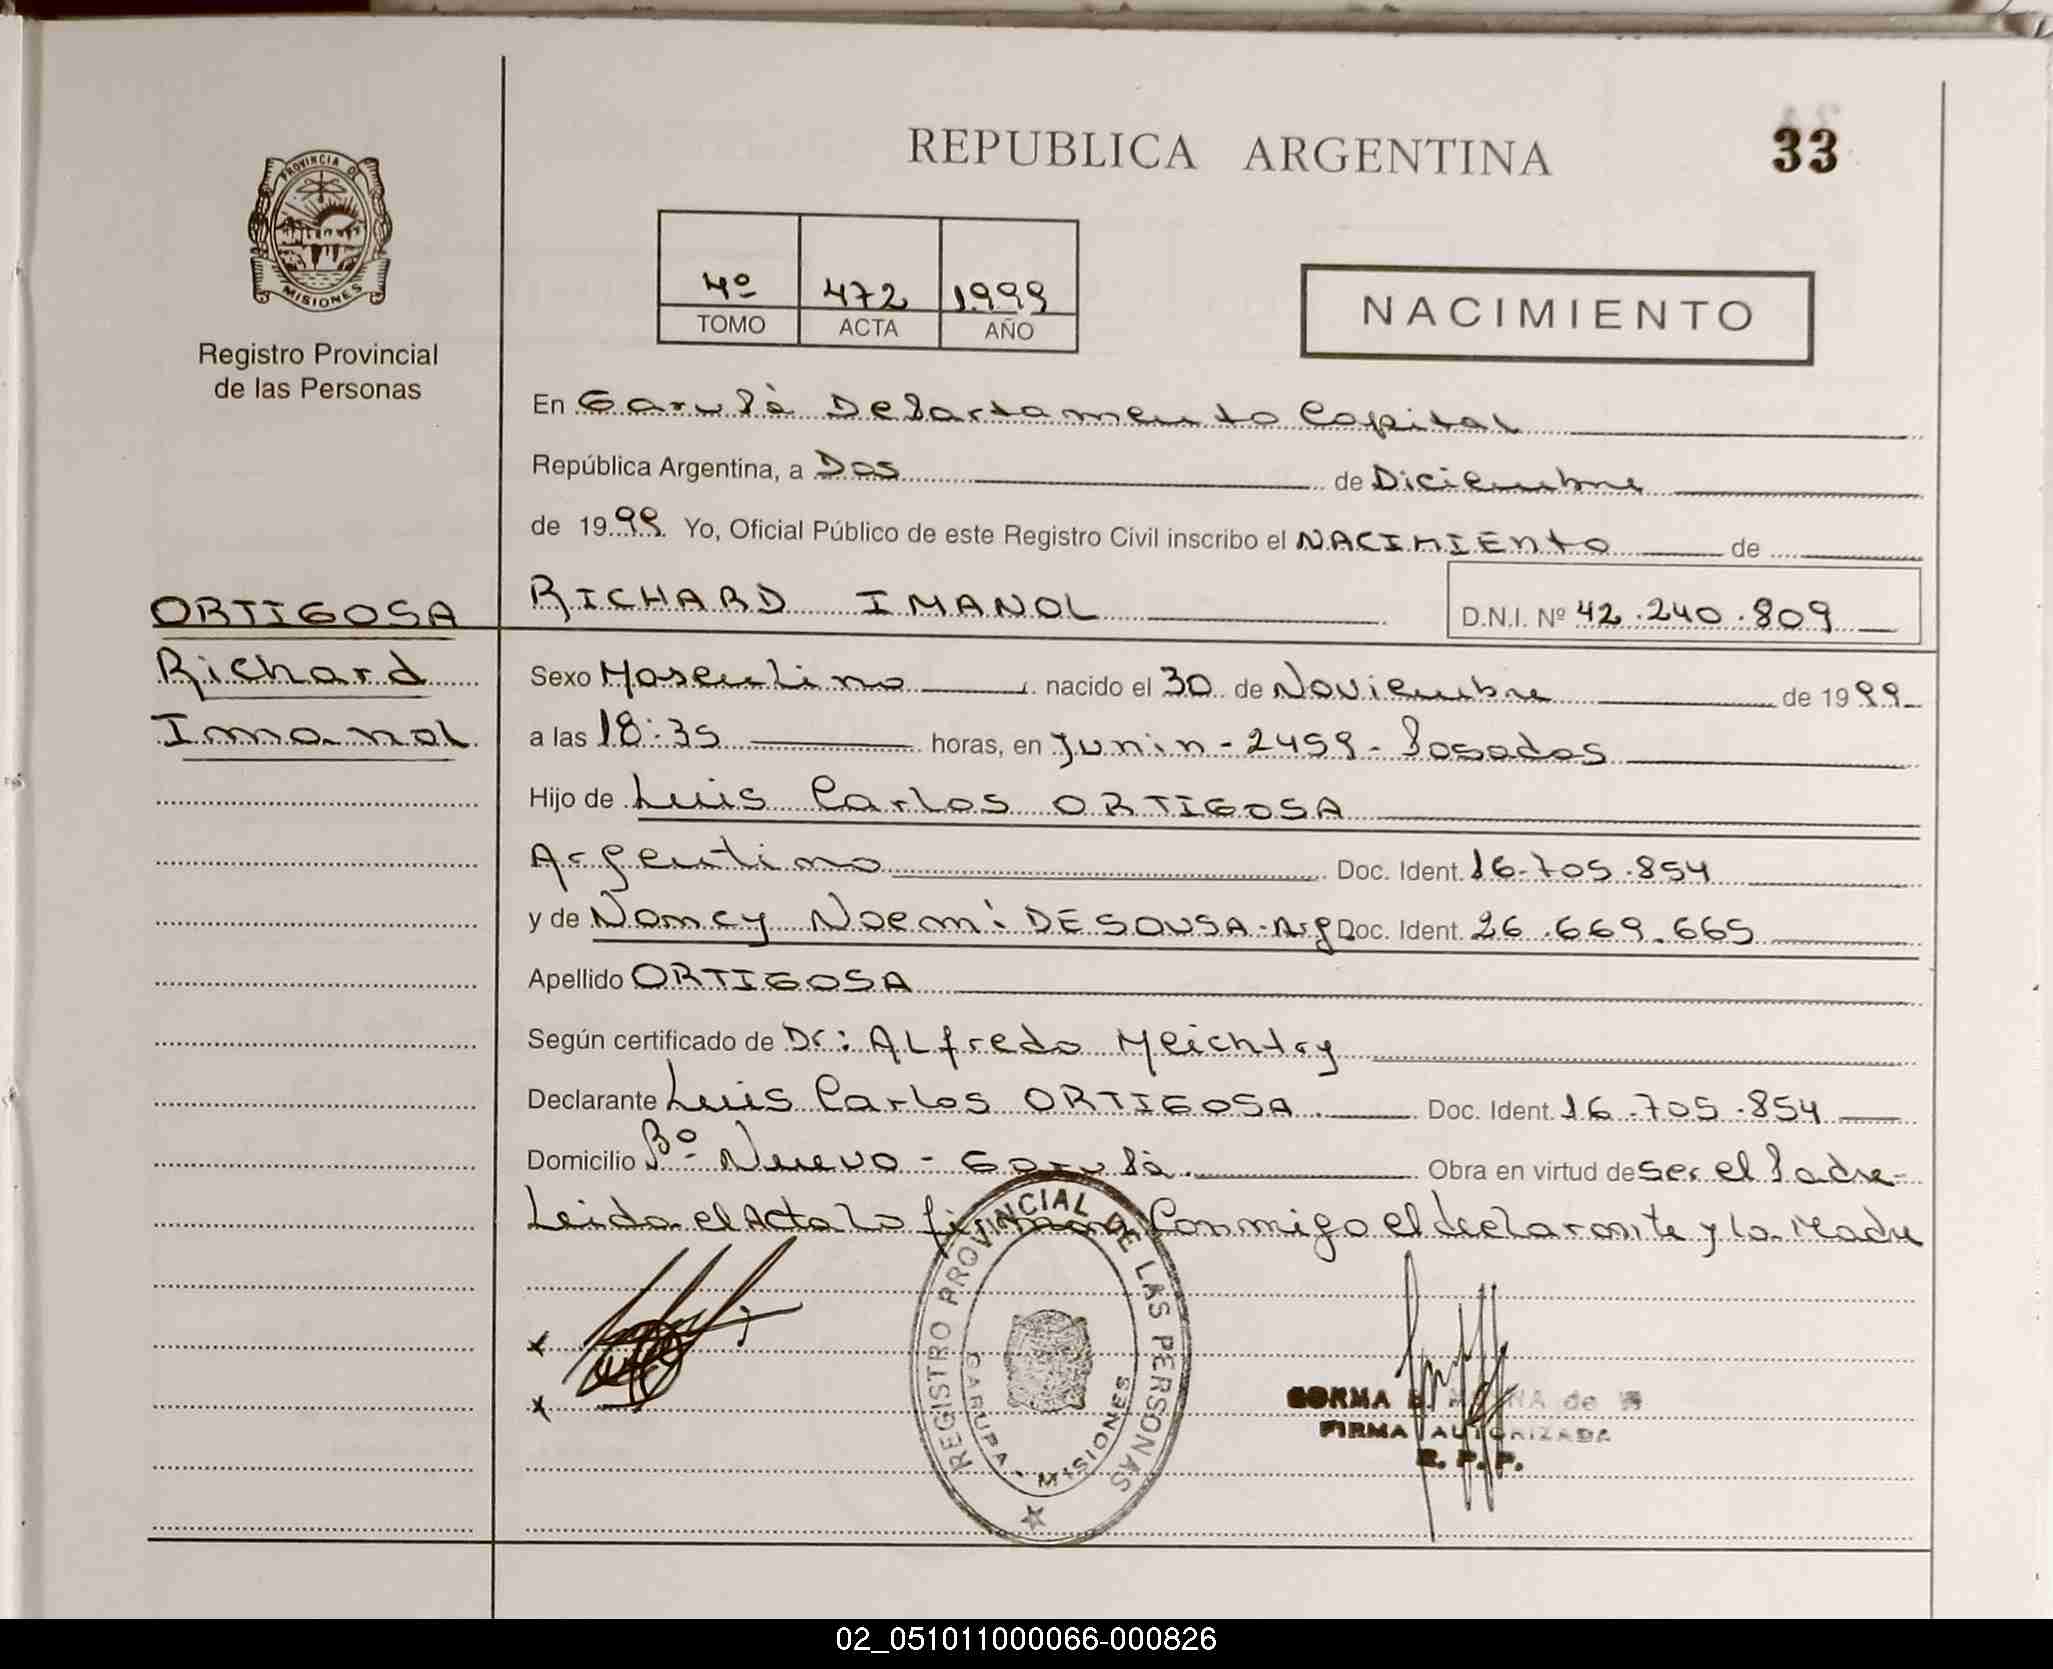 REPUBLICA ARGENTINA
33
PROVINCIA DE
MISIONES
Registro Provincial
de las Personas
4º 472 1999
TOMO ACTA AÑO
NACIMIENTO
En Garupà Departamento Capital
República Argentina, a Dos de Diciembre
de 1999 Yo, Oficial Público de este Registro Civil inscribo el NACIMIENTO de
ORTIGOSA
Richard
Imanol
RICHARD IMANOL D.N.I. Nº 42.240.809
Sexo Masculino nacido el 30 de Noviembre de 1999
a las 18:35 horas, en Junin - 2459 - Posadas
Hijo de Luis Carlos ORTIGOSA
Argentino Doc. Ident. 16.705.854
y de Nancy Noemi DE SOUSA - Arg Doc. Ident. 26.669.665
Apellido ORTIGOSA
Según certificado de Dr: ALfredo Meichtry
Declarante Luis Carlos ORTIGOSA. Doc. Ident. 16.705.854
Domicilio Bº Nuevo - Garupà. Obra en virtud de ser el Padre-
Leida el Acta lo firman Conmigo el declarante y la Madre
REGISTRO PROVINCIAL DE LAS PERSONAS
GARUPA - MISIONES
x
x
FIRMA AUTORIZADA
R. P. P.
02_051011000066-000826